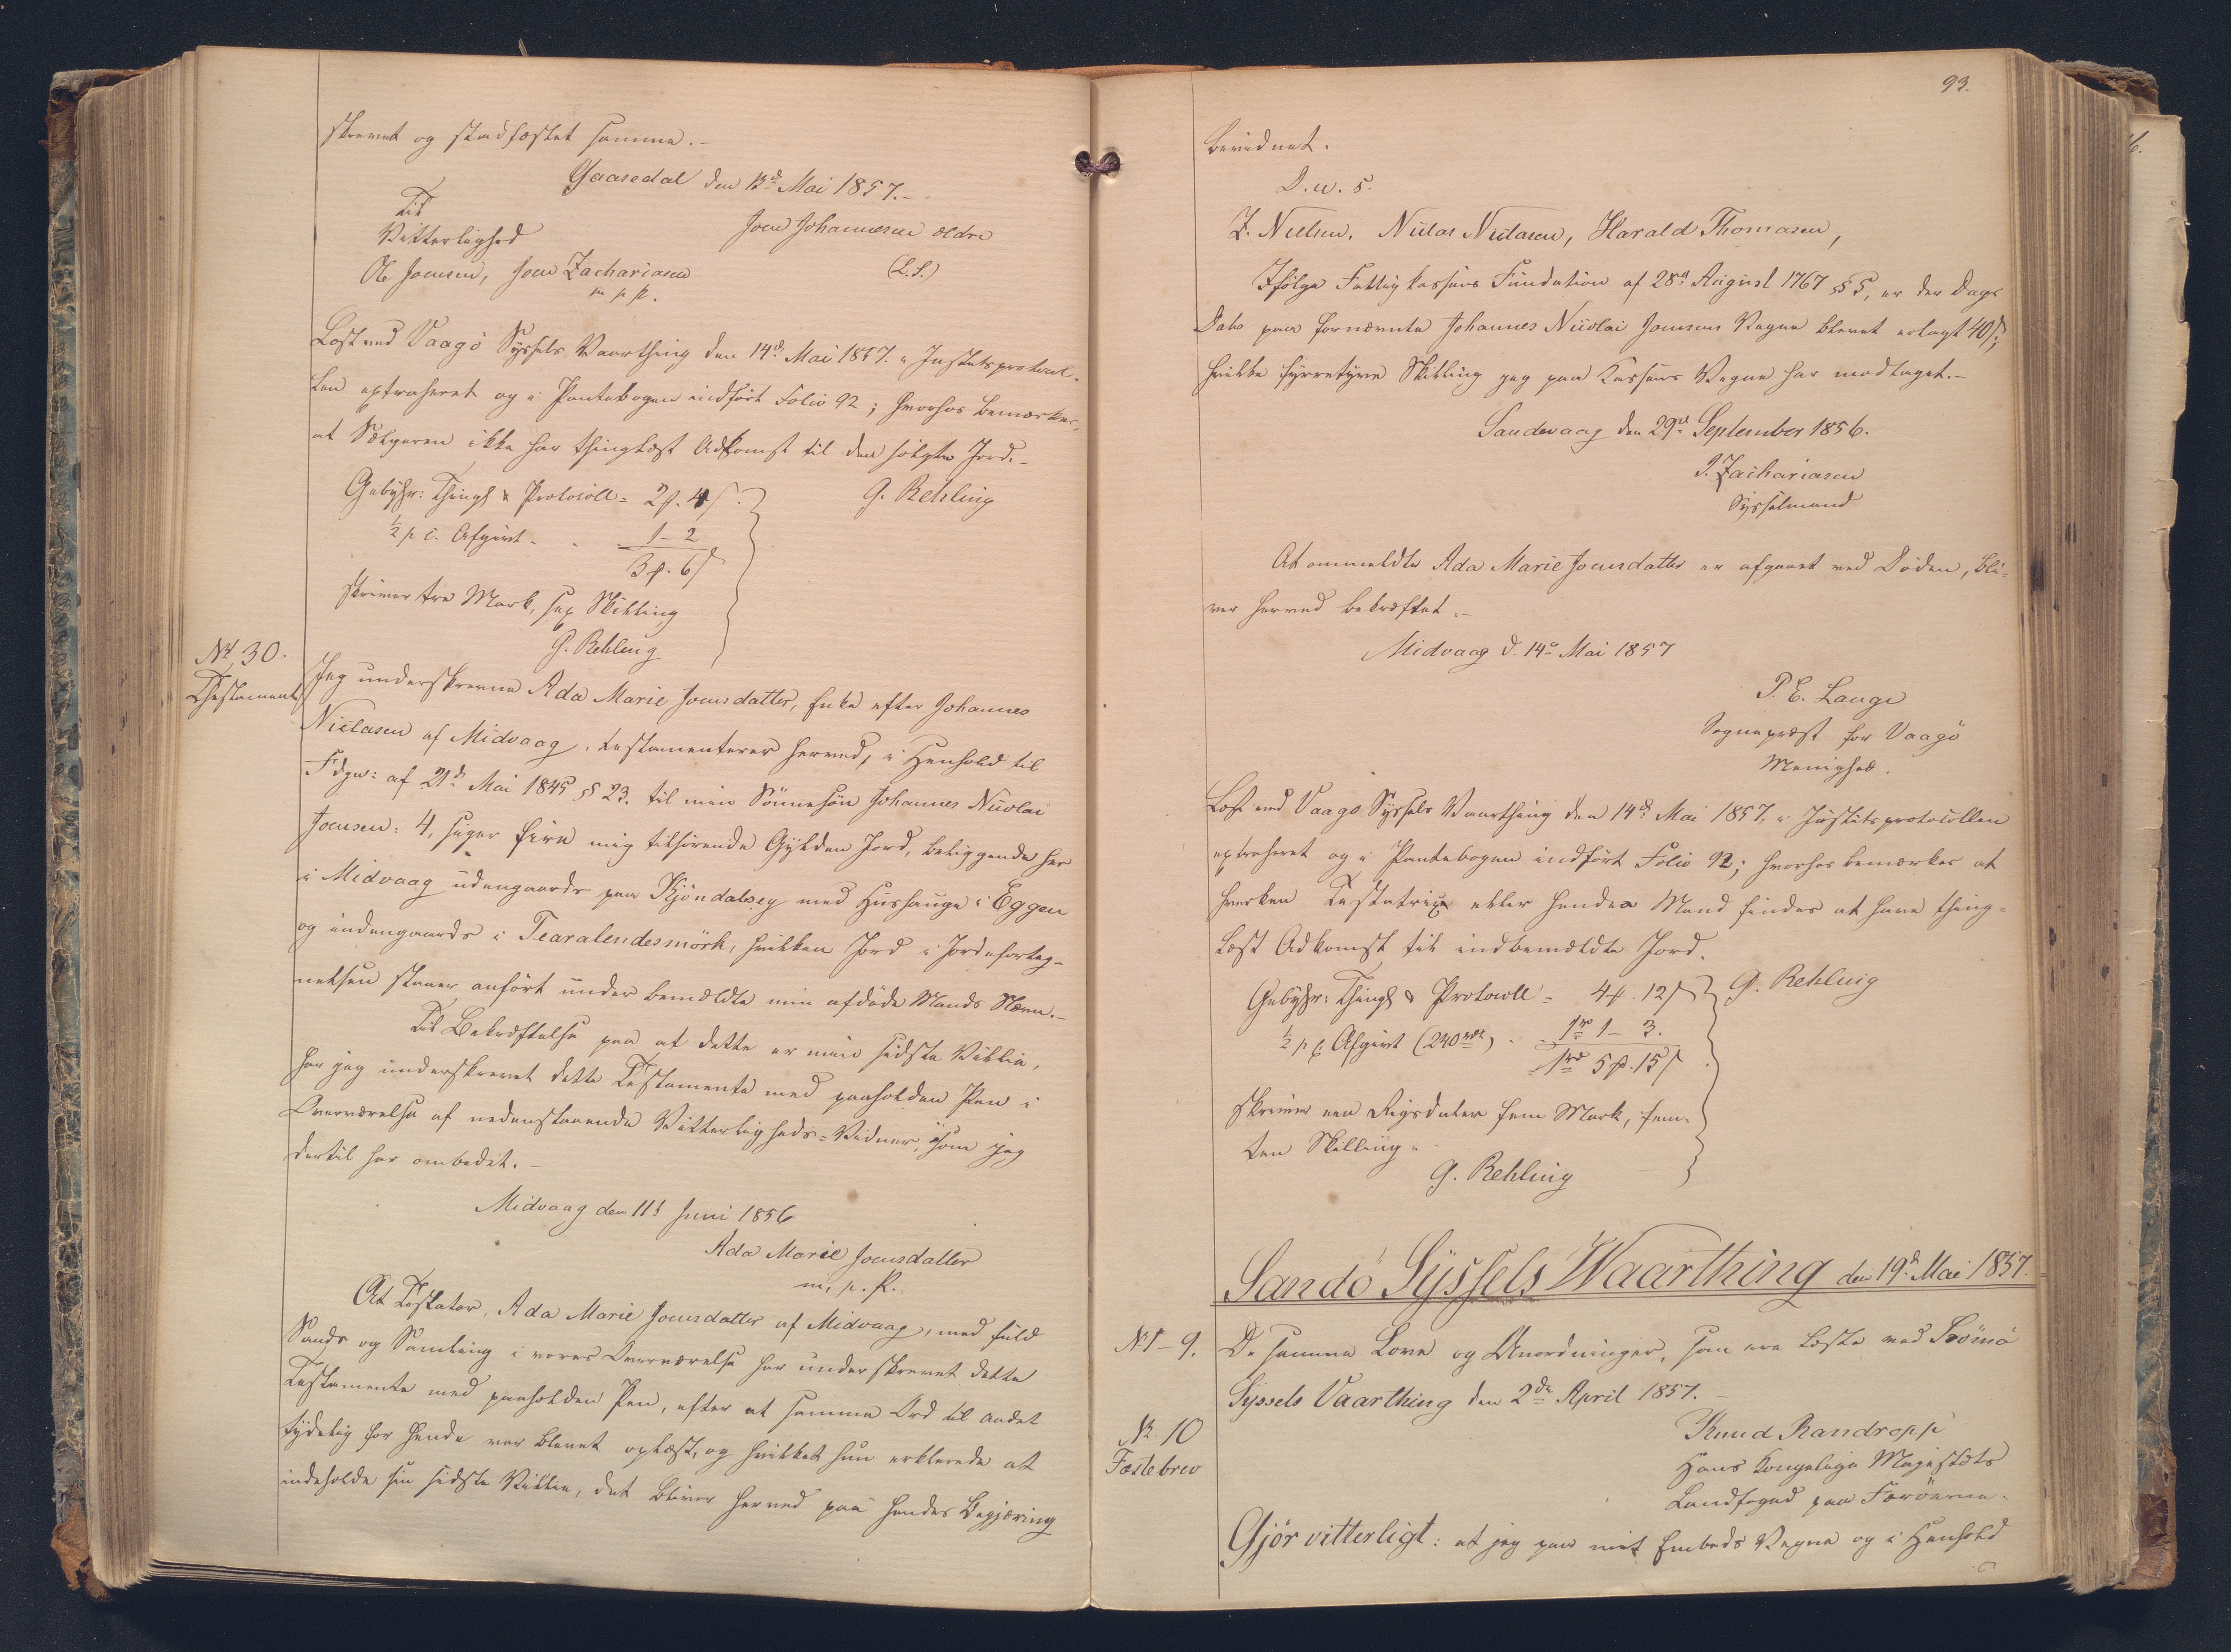 skrevet og stadfæstet samme.-
Gaasedal den 13d Mai 1857.-
Til
Vitterlighed
Joen Johannesen ældre
Ole Joensen, Joen Zachariasen
(L.S.)
m. p. P.
Læst ved Vaagö Syssels Vaarthing den 14d Mai 1857. i Justitsprotocol-
len extraheret og i Pantebogen indfört Folio 92; hvorhos bemærkes,
at Sælgeren ikke har thinglæst Adkomst til den solgte Jord.-
Gebyhr: Thingl & Protocoll = 2β. 4β.
G. Rehling
½ p C. Afgivt - - 1 - 2
3β. 6β
skriver tre Mark, sex Skilling
G. Rehling
No 30.
Testament
Jeg underskrevne Ada Marie Joensdatter, Enke efter Johannes
Niclasen af Midvaag, testamenterer herved, i Henhold til
Fdgn: af 21d Mai 1845 § 23. til min Sönnesön Johannes Nicolai
Joensen: 4, siger fire mig tilhörende Gylden Jord, beliggende her
i Midvaag udengaards paa Kjöndalsey med Huushauge i Eggen
og indengaards i Tearalendesmörk, hvilken Jord i Jordeforteg-
nelsen staaer anfört under bemeldte min afdöde Mands Navn.-
Til Bekræftelse paa at dette er min sidste Villie,
har jeg underskrevet dette Testamente med paaholden Pen i
Overværelse af nedenstaaende Vitterligheds-Vidner, som jeg
dertil har ombedet.-
Midvaag den 11t Juni 1856
Ada Marie Joensdatter
m. p. P.
At Testator, Ada Marie Joensdatter af Midvaag, med fuld
Sands og Samling i vores Overværelse har underskrevet dette
Testamente med paaholden Pen, efter at samme Ord til andet
tydelig for hende var blevet oplæst, og hvilket hun erklerede at
indeholde sin sidste Villie, det bliver herved paa hendes Begjæring
93.
bevidnet.
D. u. s.
Z. Nielsen. Niclas Niclasen, Harald Thomasen,
Ifölge Fattigkassens Fundation af 28d August 1767 § 5, er der Dags
Dato paa fornævnte Johannes Nicolai Joensens Vegne blevet erlagt 40β;
hvilke fyrretyve Skilling jeg paa Kassens Vegne har modtaget.-
Sandevaag den 29d September 1856.
J. Zachariasen
Sysselmand
At ommeldte Ada Marie Joensdatter er afgaaet ved Döden, bli-
ver herved bekræftet.-
Midvaag d. 14d Mai 1857
P. E. Lange
Sognepræst for Vaagö
Menighed.
Læst ved Vaagö Syssels Vaarthing den 14d Mai 1857, i Justitsprotocollen
extraheret og i Pantebogen indfört Folio 92; hvorhos bemærkes at
hverken Testatrix eller hendes Mand findes at have thing-
læst Adkomst til indbemeldte Jord.
Gebyhr: Thingl & Protocoll = 4β. 12β
G. Rehling
½ p C. Afgivt (240 rdl) - - 1rd 1 - 3.
1rd 5β. 15β
skriver een Rigsdaler fem Mark, fem-
ten Skilling.
G. Rehling
Sandö Syssels Vaarthing den 19d Mai 1857.
No 1-9.
De samme Love og Anordninger, som ere læste ved Strömö
Syssels Vaarthing den 2de April 1857.-
No 10
Fæstebrev
Knud Randropp
Hans Kongelige Majestæts
Landfoged paa Færöerne.
Gjör vitterligt: at jeg paa mit Embeds Vegne og i Henhold